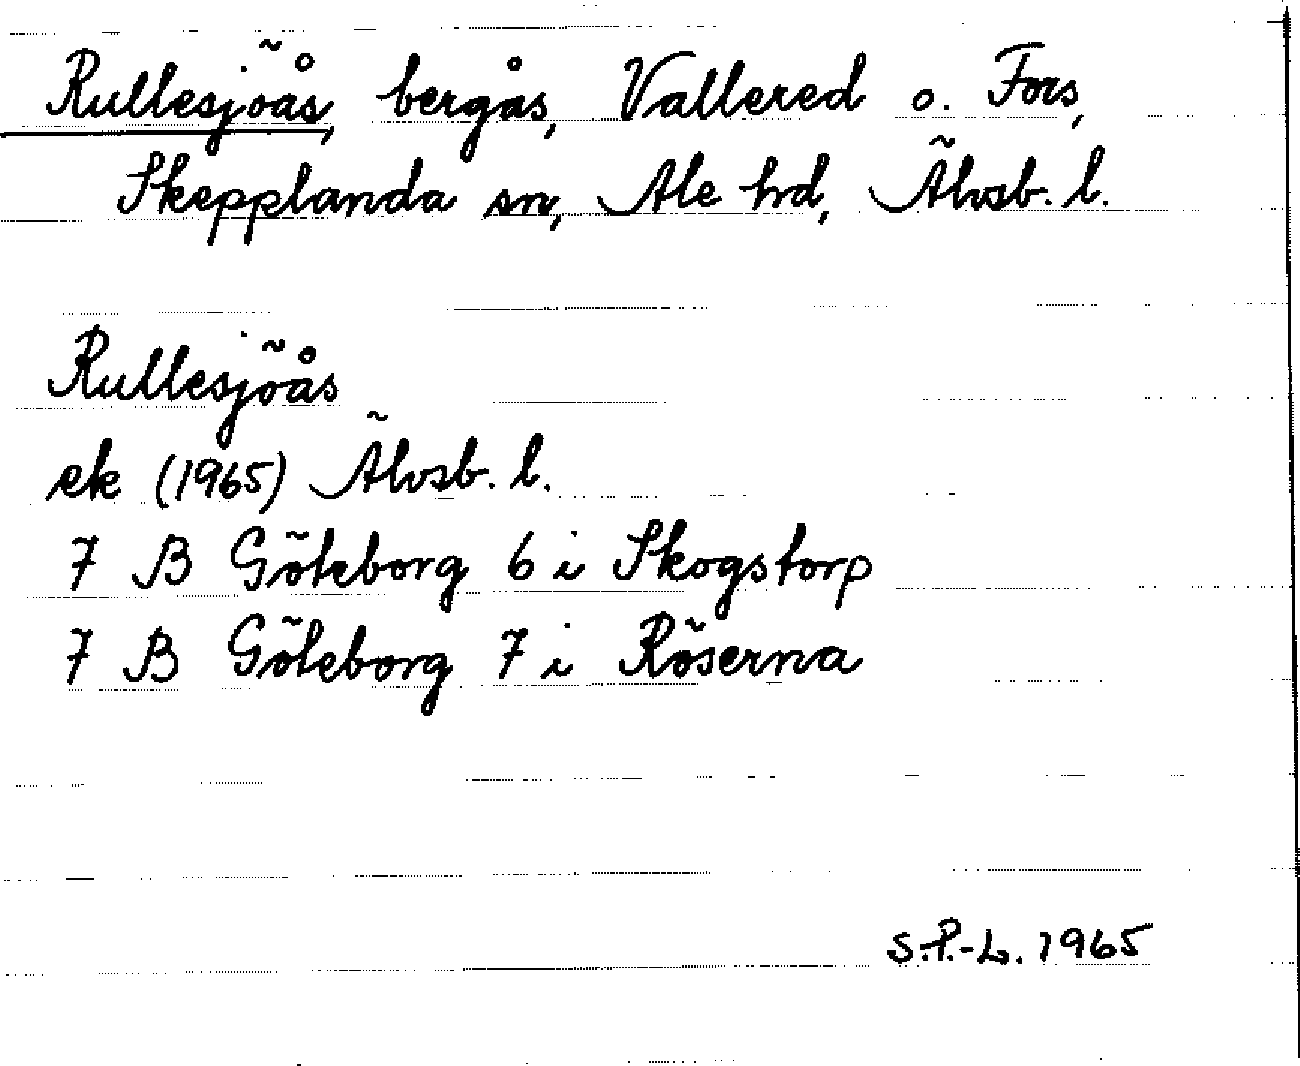 Rullesjöås, bergås, Vallered o. Fors,
Skepplanda sn, Ale hrd, Älvsb. l.
Rullesjöås
ek (1965) Älvsb. l.
7 B Göteborg 6 i Skogstorp
7 B Göteborg 7 i Röserna
S.P.-L. 1965